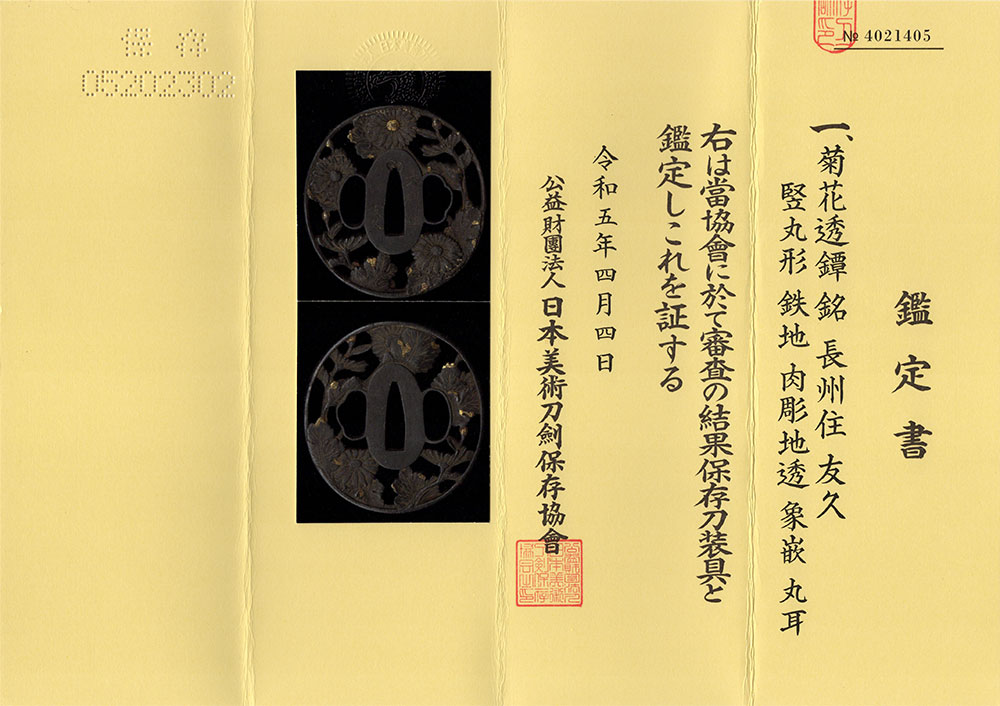 № 4021405
鑑定書
一、菊花透鐔 銘 長州住 友久
竪丸形 鉄地 肉彫地透 象嵌 丸耳
右は當協會に於て審査の結果保存刀装具と
鑑定しこれを証する
令和五年四月四日
公益財團法人 日本美術刀劍保存協會
保存
05202302